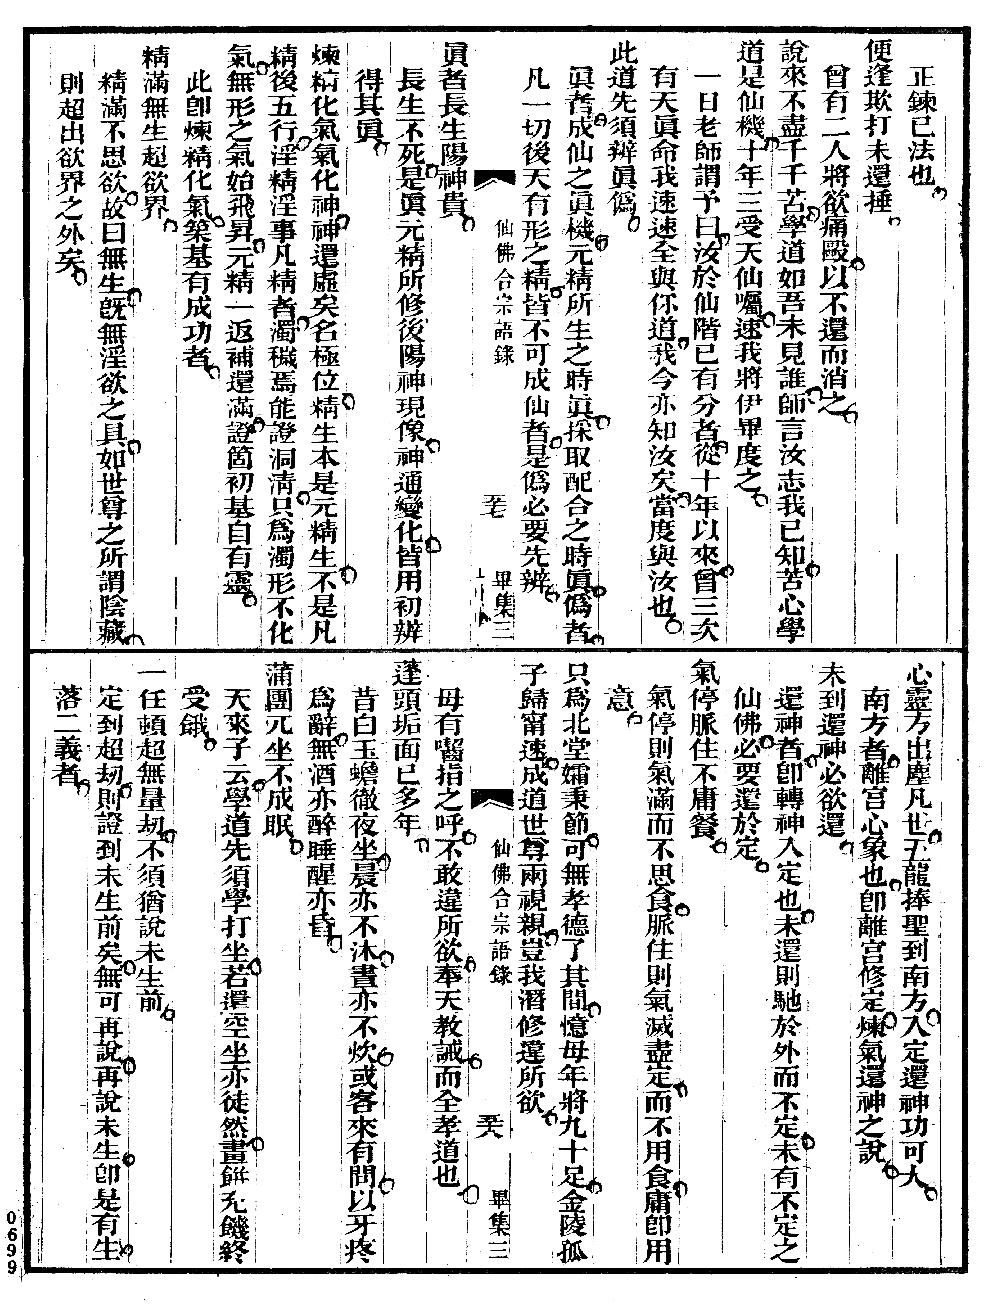 正鍊己法也
便逢欺打未還捶
曾有二人將欲痛毆以不還而消之
說來不盡千千苦學道如吾未見誰師言汝志我已知苦心學
道是仙機十年三受天仙囑速我將伊畢度之
一日老師謂予曰汝於仙階已有分者從十年以來曾三次
有天眞命我速速全與你道我今亦知汝矣當度與汝也
此道先須辨眞僞
眞者成仙之眞機元精所生之時眞採取配合之時眞僞者
凡一切後天有形之精皆不可成仙者是僞必要先辨
仙佛合宗語錄
畢集三
眞者長生陽神貴
長生不死是眞元精所修後陽神現像神通變化皆用初辨
得其眞
煉精化氣氣化神神還虛矣名極位精生本是元精生不是凡
精後五行淫精淫事凡精者濁穢焉能證洞淸只爲濁形不化
氣無形之氣始飛昇元精一返補還滿證箇初基自有靈
此卽煉精化氣築基有成功者
精滿無生超欲界
精滿不思欲故曰無生旣無淫欲之具如世尊之所謂陰藏
則超出欲界之外矣
心靈方出塵凡世五龍捧聖到南方入定還神功可人
南方者離宮心象也卽離宮修定煉氣還神之說
未到還神必欲還
還神者卽轉神入定也未還則馳於外而不定未有不定之
仙佛必要還於定
氣停脈住不庸餐
氣停則氣滿而不思食脈住則氣滅盡定而不用食庸卽用
意
只爲北堂孀秉節可無孝德了其間憶母年將九十足金陵孤
子歸甯速成道世尊兩視親豈我潛修違所欲
仙佛合宗語錄
畢集三
母有嚙指之呼不敢違所欲奉天教誡而全孝道也
蓬頭垢面已多年
昔白玉蟾徹夜坐晨亦不沐晝亦不炊或客來有問以牙疼
爲辭無酒亦醉睡醒亦昏
蒲團兀坐不成眠
天來子云學道先須學打坐若還空坐亦徒然畫餠充饑終
受餓
一任頓超無量劫不須猶說未生前
定到超劫則證到未生前矣無可再說再說未生卽是有生
落二義者
0699